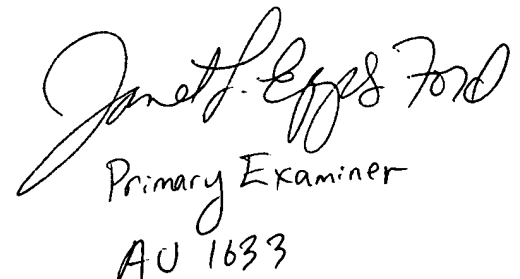 Janet L. Epps Ford
Primary Examiner
AU 1633